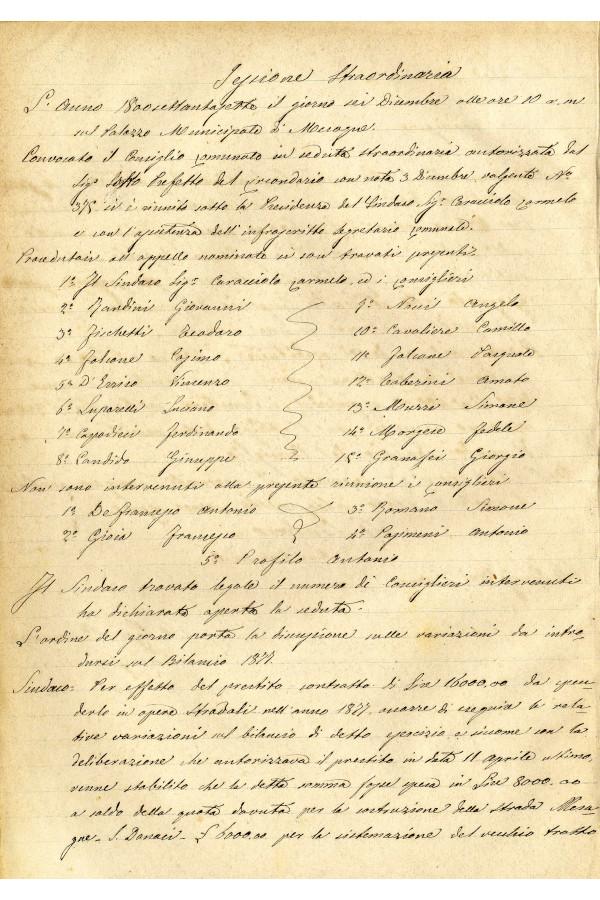 Sessione Straordinaria
L'Anno 1800settantasette il giorno sei Dicembre alle ore 10 a. m.
sul Palazzo Municipale di Mesagne.
Convocato il Consiglio Comunale in seduta straordinaria autorizzata dal
Sigr Sotto Prefetto del Circondario con nota 3 Dicembre volgente No
375 si è riunito sotto la Presidenza del Sindaco Sigr Caracciolo Carmelo
e con l'assistenza dell'infrascritto Segretario Comunale.
Procedutasi all'appello nominale si son trovati presenti.
1o Il Sindaco Sigr Caracciolo Carmelo, ed i Consiglieri
2o Nardini Giovanni 9o Noci Angelo
3o Fischetti Teodoro 10o Cavaliere Camillo
4o Falcone Cosimo 11o Falcone Pasquale
5o D'Errico Vincenzo 12o Amato
6o Luparelli Luciano 13o Muzzi Simone
7o Capodieci Ferdinando 14o Morgese Fedele
8o Candido Giuseppe 15o Granafei Giorgio
Non sono intervenuti alla presente riunione i Consiglieri
1o De Francesco Antonio 3o Romano Simone
2o Gioia Francesco 4o Pasimeni Antonio
5o Profilo Antonio
Il Sindaco trovato legale il numero di Consiglieri intervenuti
ha dichiarato aperta la seduta.
L'ordine del giorno porta la discussione sulle variazioni da intro-
dursi sul Bilancio 1877.
Sindaco: Per effetto del prestito contratto di Lire 16000,00 da spen-
derlo in opere Stradali nell'anno 1877 occorre di eseguire le rela-
tive variazioni sul bilancio di detto esercizio e siccome con la
deliberazione che autorizzava il prestito in data 11 aprile ultimo,
venne stabilito che la detta somma fosse spesa in Lire 8000.00
a saldo della quota dovuta per la costruzione della Strada Mesa-
gne - S. Donaci - £ 6000,00 per la sistemazione del vecchio tratto